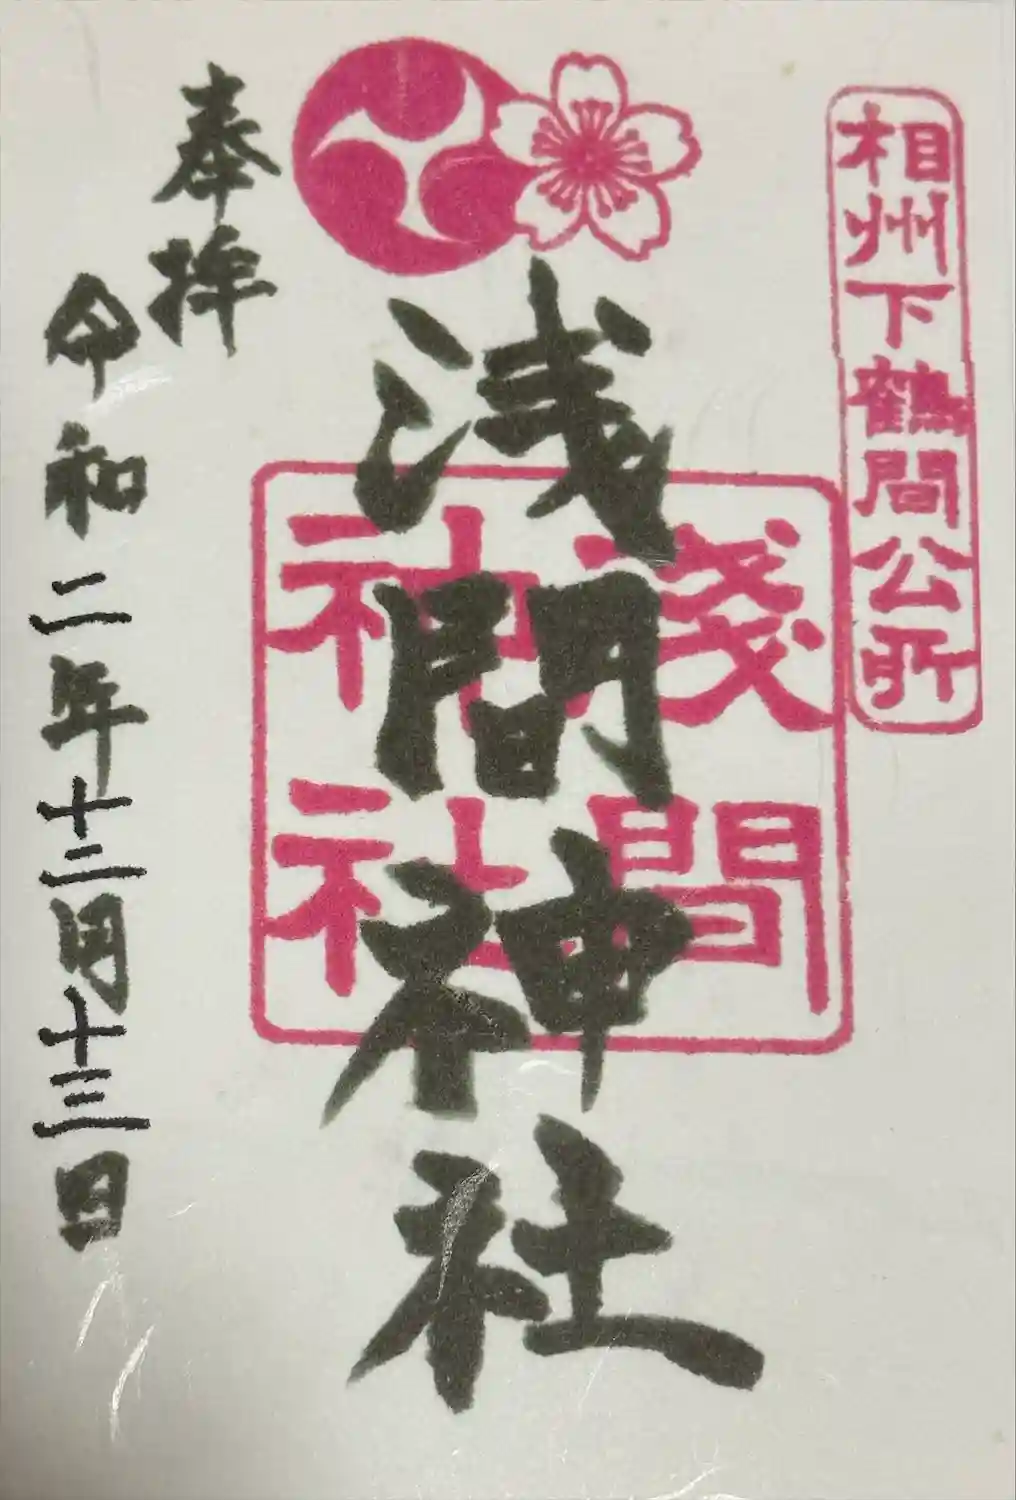 相州下鶴間公所
浅間神社
淺間
神社
奉拝
令和二年十二月十三日